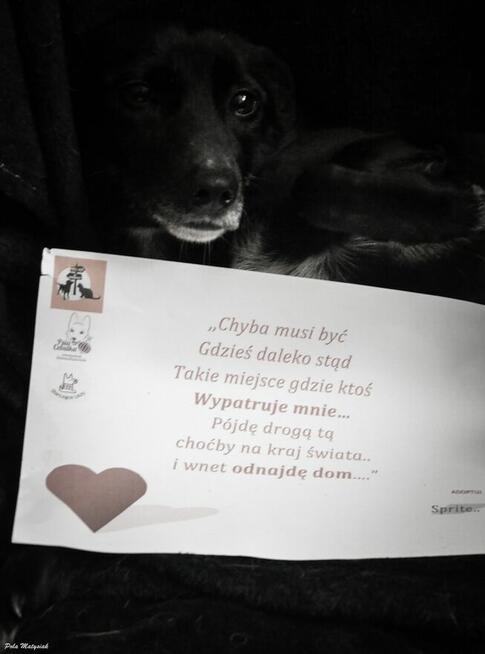 „Chyba musi być
Gdzieś daleko stąd
Takie miejsce gdzie ktoś
Wypatruje mnie...
Pójdę drogą tą
choćby na kraj świata..
i wnet odnajdę dom....”
Sprite..
Pola Matysiak